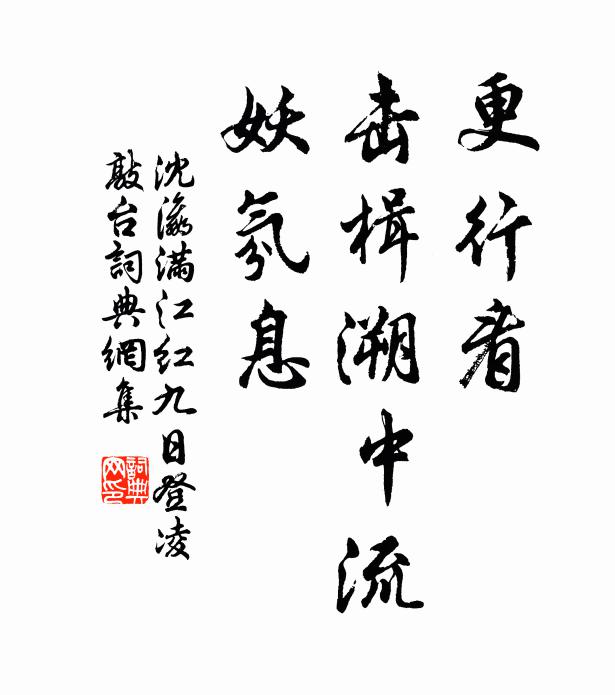 更行看
击楫溯中流
妖氛息
沈瀛满江红九日登凌
敲台詞典網集
詞典网印